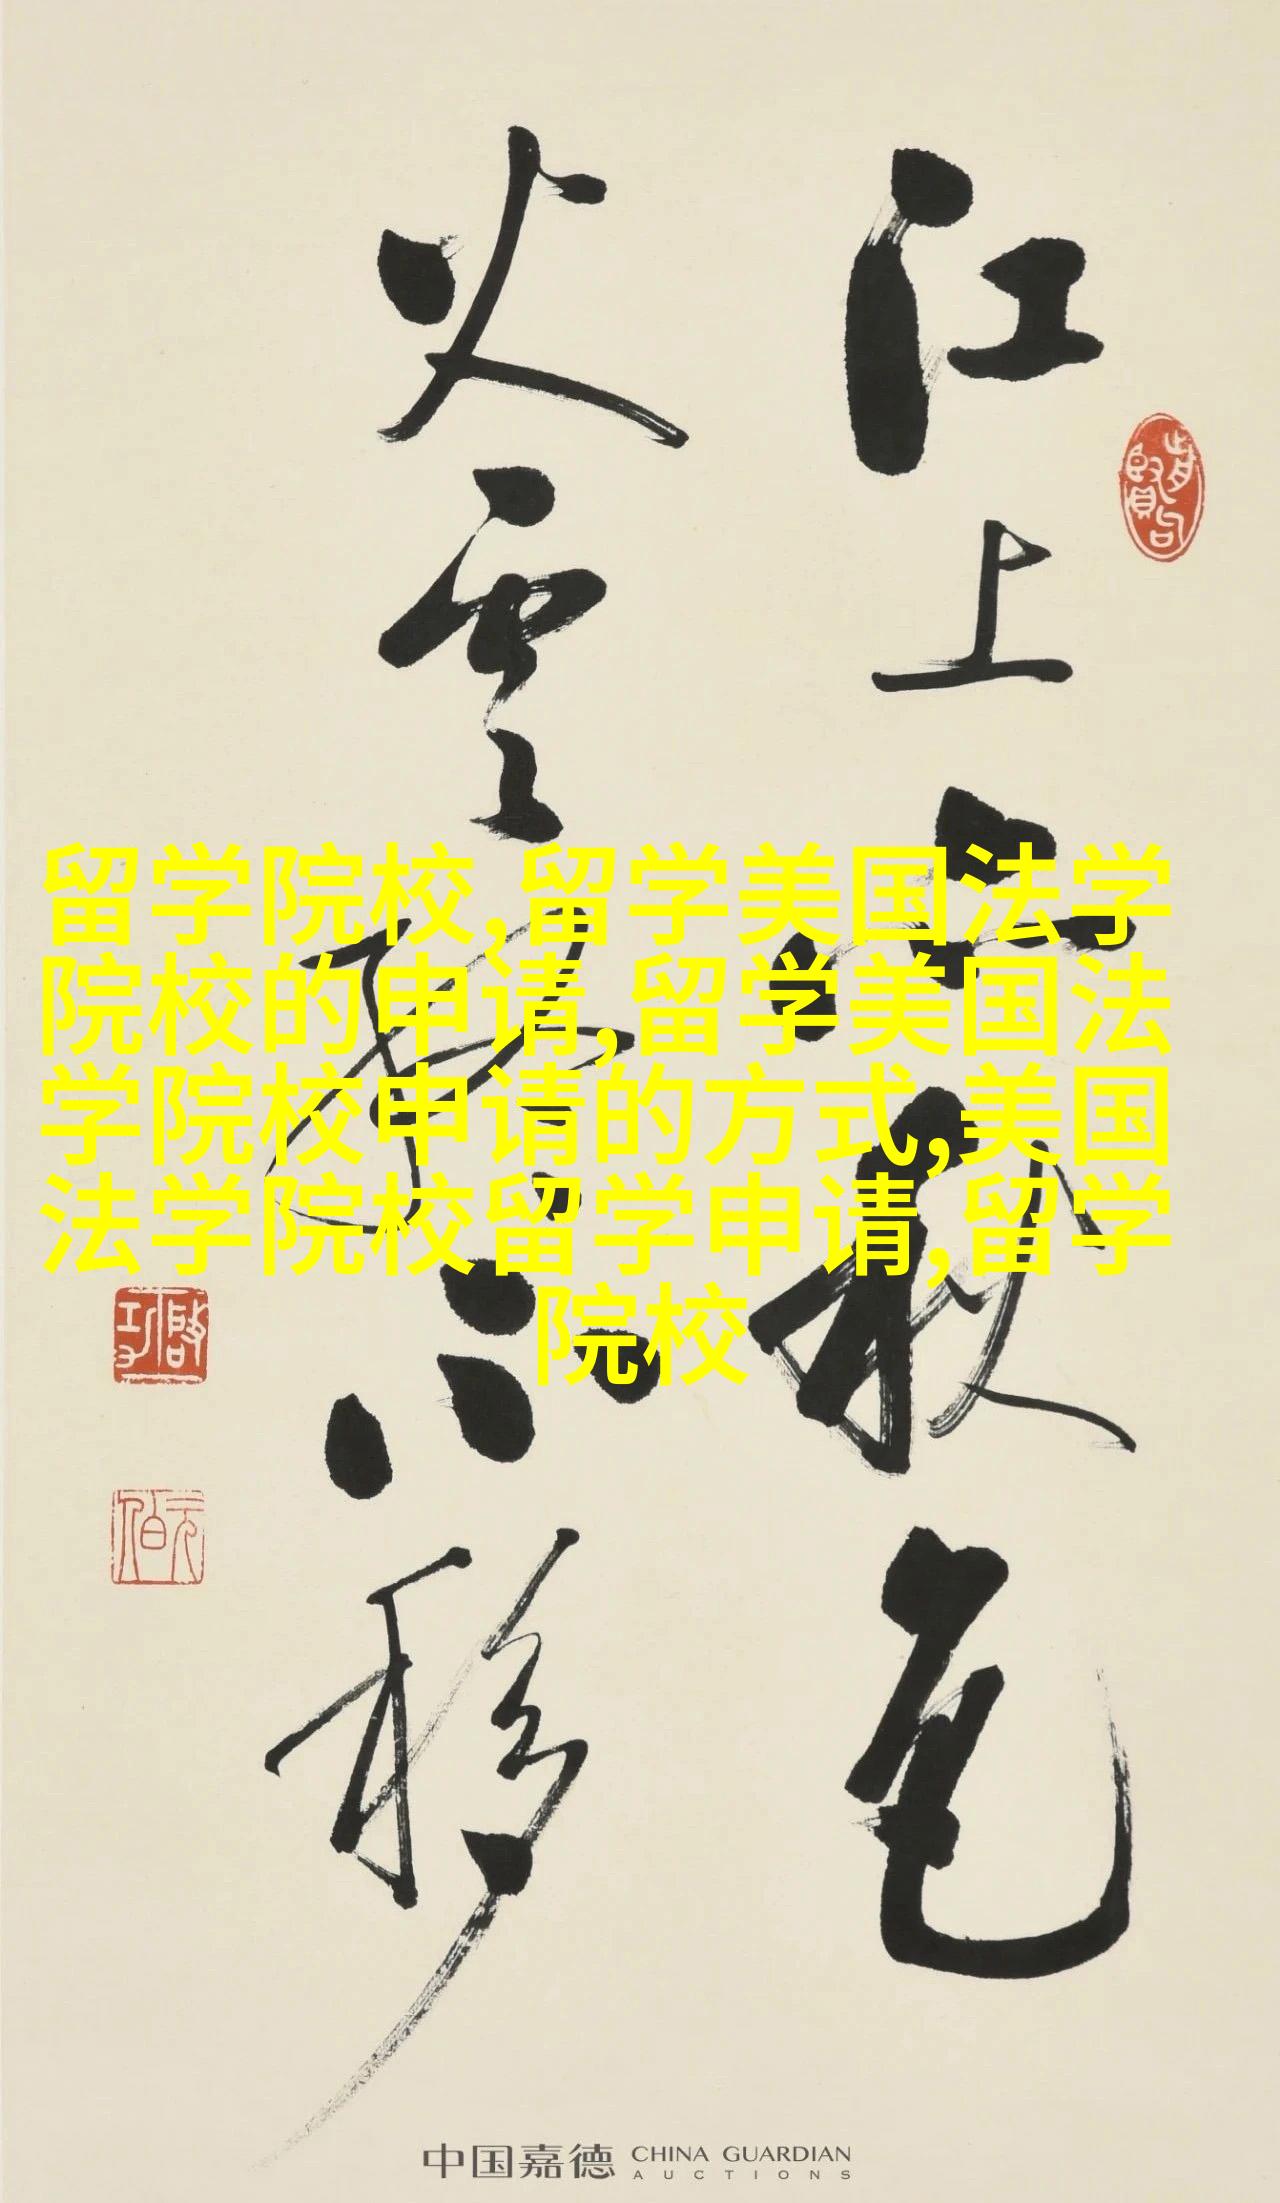 江上亦秋色
火雲終不移
留学院校,留学美国法学
院校的申请,留学美国法
学院校申请的方式,美国
法学院校留学申请,留学
院校
啓功
元伯
中国嘉德 CHINA GUARDIAN
AUCTIONS